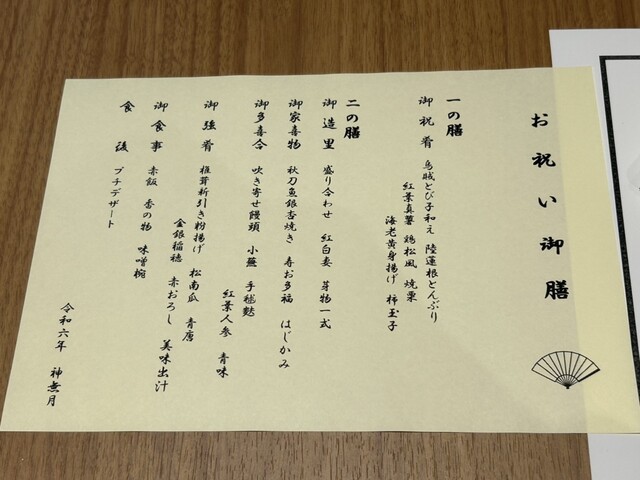 お祝い御膳
一の膳
御祝肴 烏賊とび子和え 陸蓮根とんぶり
紅葉真薯 鶏松風 焼栗
海老黄身揚げ 柿玉子
二の膳
御造里 盛り合わせ 紅白妻 芽物一式
御家喜物 秋刀魚銀杏焼き 寿お多福 はじかみ
御多喜合 吹き寄せ饅頭 小蕪 手毬麩
紅葉人参 青味
御強肴 椎茸新引き粉揚げ 松南瓜 青唐
金銀稲穂 赤おろし 美味出汁
御食事 赤飯 香の物 味噌椀
食後 プチデザート
令和六年 神無月